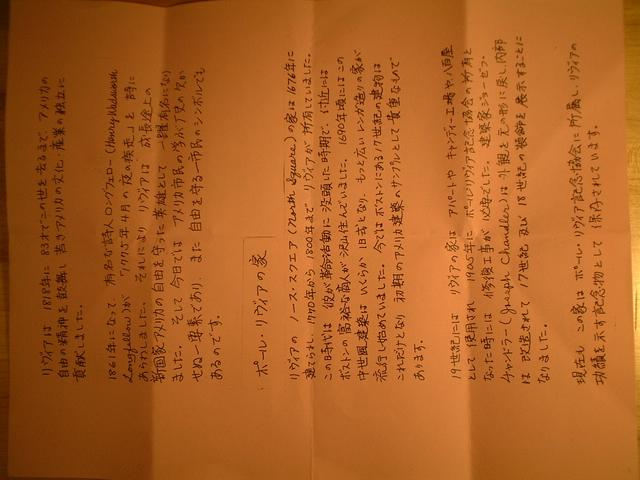 リヴィアは 1818年に 83才でこの世を去るまで、アメリカの
自由の精神を鼓舞し 若きアメリカの文化・産業の独立に
貢献しました。
1861年になって 有名な詩人ロングフェロー(Henry Wadsworth
Longfellow)が 「1775年4月 夜の疾走」と 詩に
あらわしました。 それにより リヴィアは 成長途上の
新国家アメリカの自由を守った 英雄として 一躍有名になり
ました。そして 今日では アメリカ市民の 欠か
せぬ 要素であり、また 自由を守る一市民のシンボルでも
あるのです。
ポール・リヴィアの家
リヴィアの ノース・スクエア (North Square)の家は 1676年に
建てられ、1770年から 1800年まで リヴィアが 所有していました。
この時代は 彼が革命活動に 没頭した時期で、付近には
ボストンの富裕な商人が 沢山住んでいました。1690年頃にはこの
中世風建築は いくらか 旧式となり、もっと広い レンガ造りの家が
流行し始めていました。今では ボストンにある17世紀の建物は
これだけとなり 初期のアメリカ建築のサンプルとして 貴重なもので
あります。
19世紀には リヴィアの家は アパートや キャンディー工場や 八百屋
として 使用され 1905年に ポールリヴィア記念協会の所有と
なった時には 修復工事が 必要でした。建築家ジョーゼフ・
チャンドラー(Joseph Chandler)は 外観を元の形に戻し 内部
は 改造されて 17世紀 及び 18世紀の装飾を展示することに
なりました。
現在も この家は ポール・リヴィア記念協会に 所属し、リヴィアの
功績を示す記念物として 保存されています。